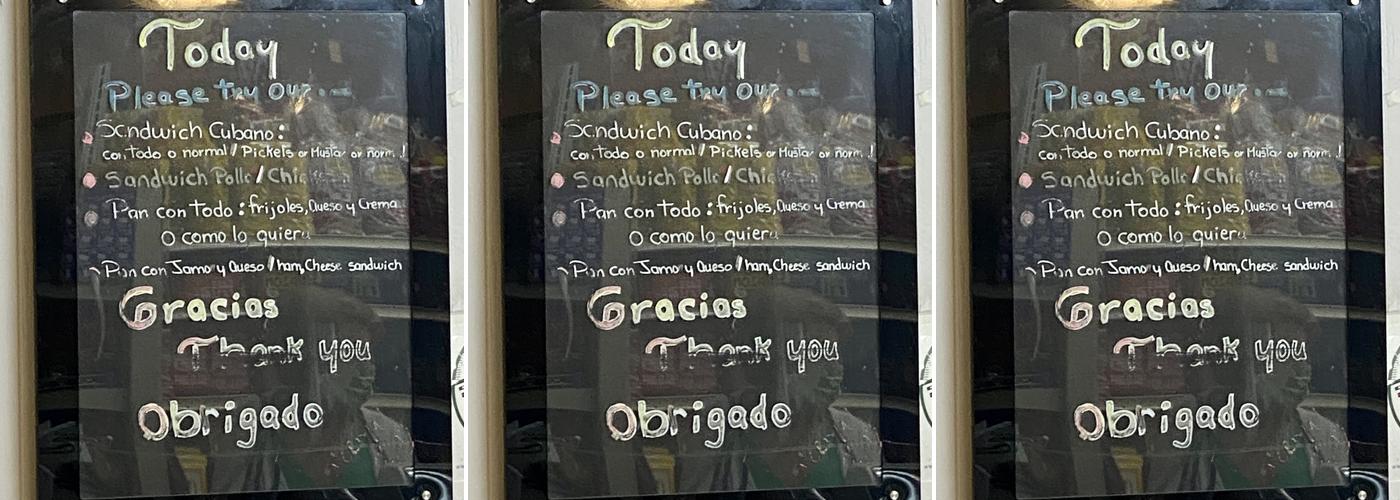 Today
Please try our...
Sandwich Cubano:
con todo o normal / Pickels or or
Sandwich Pollo /
Pan con todo: frijoles, Queso y Crema
O como lo quiera
Pan con Jamon y Queso / ham, Cheese sandwich
Gracias
Thank you
Obrigado
Today
Please try our...
Sandwich Cubano:
con todo o normal / Pickels or or
Sandwich Pollo /
Pan con todo: frijoles, Queso y Crema
O como lo quiera
Pan con Jamon y Queso / ham, Cheese sandwich
Gracias
Thank you
Obrigado
Today
Please try our...
Sandwich Cubano:
con todo o normal / Pickels or or
Sandwich Pollo /
Pan con todo: frijoles, Queso y Crema
O como lo quiera
Pan con Jamon y Queso / ham, Cheese sandwich
Gracias
Thank you
Obrigado